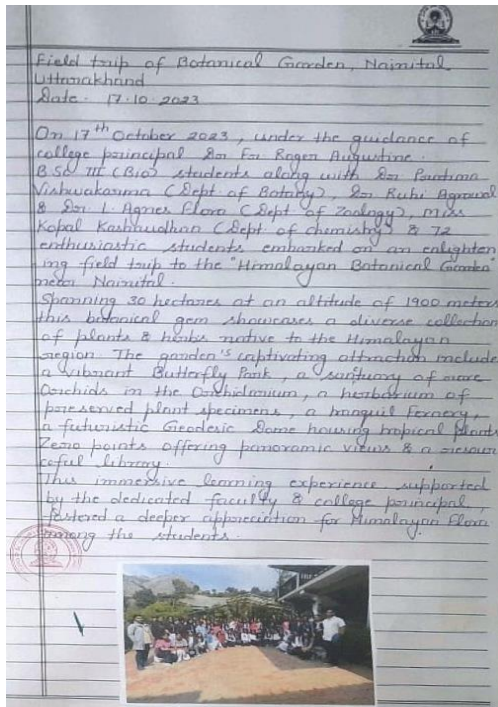 Field trip of Botanical Garden, Nainital,
Uttarakhand
Date - 17.10.2023
On 17th October 2023, under the guidance of
college principal Dr Fr Roger Augustine.
B.Sc III (Bio) students along with Dr Pratima
Vishwakarma (Dept of Botany), Dr Ruhi Agrawal
& Dr. L. Agnes Flora (Dept of Zoology), Miss
Kopal Kashaudhan (Dept of chemistry) & 72
enthusiastic students embarked on an enlighten
ing field trip to the "Himalayan Botanical Garden"
near Nainital.
Spanning 30 hectares at an altitude of 1900 meters
this botanical gem showcases a diverse collection
of plants & herbs native to the Himalayan
region. The garden's captivating attraction include
a vibrant Butterfly Park, a sanctuary of rare
Orchids in the Orchidarium, a herbarium of
preserved plant specimens, a tranquil Fernery,
a futuristic Geodesic Dome housing tropical plants
Zero points offering panoramic views & a resour
ceful library.
This immersive learning experience supported
by the dedicated faculty & college principal,
fostered a deeper appreciation for Himalayan Flora
among the students.